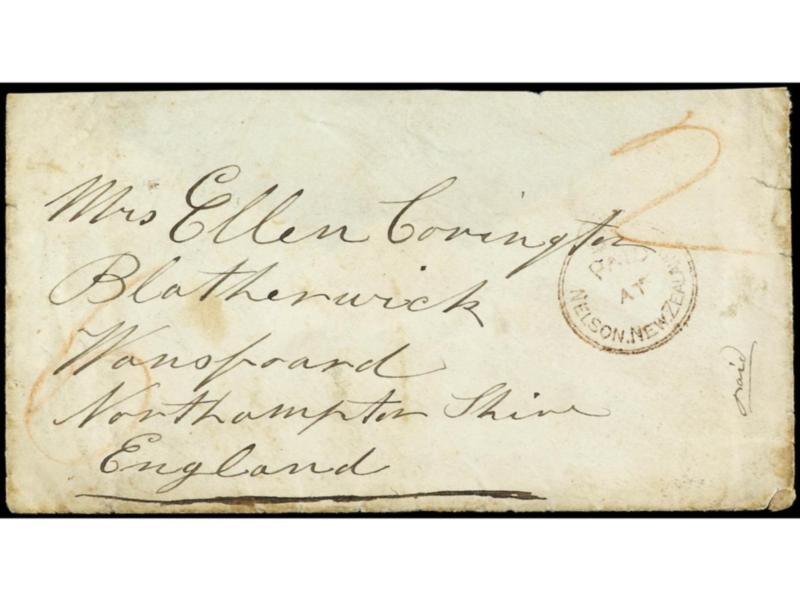 2
Mrs Ellen Covington
Blatherwick
Wansfoard
Northampton Shire
England
PAID
AT
NELSON. NEW ZEALAND
paid
6